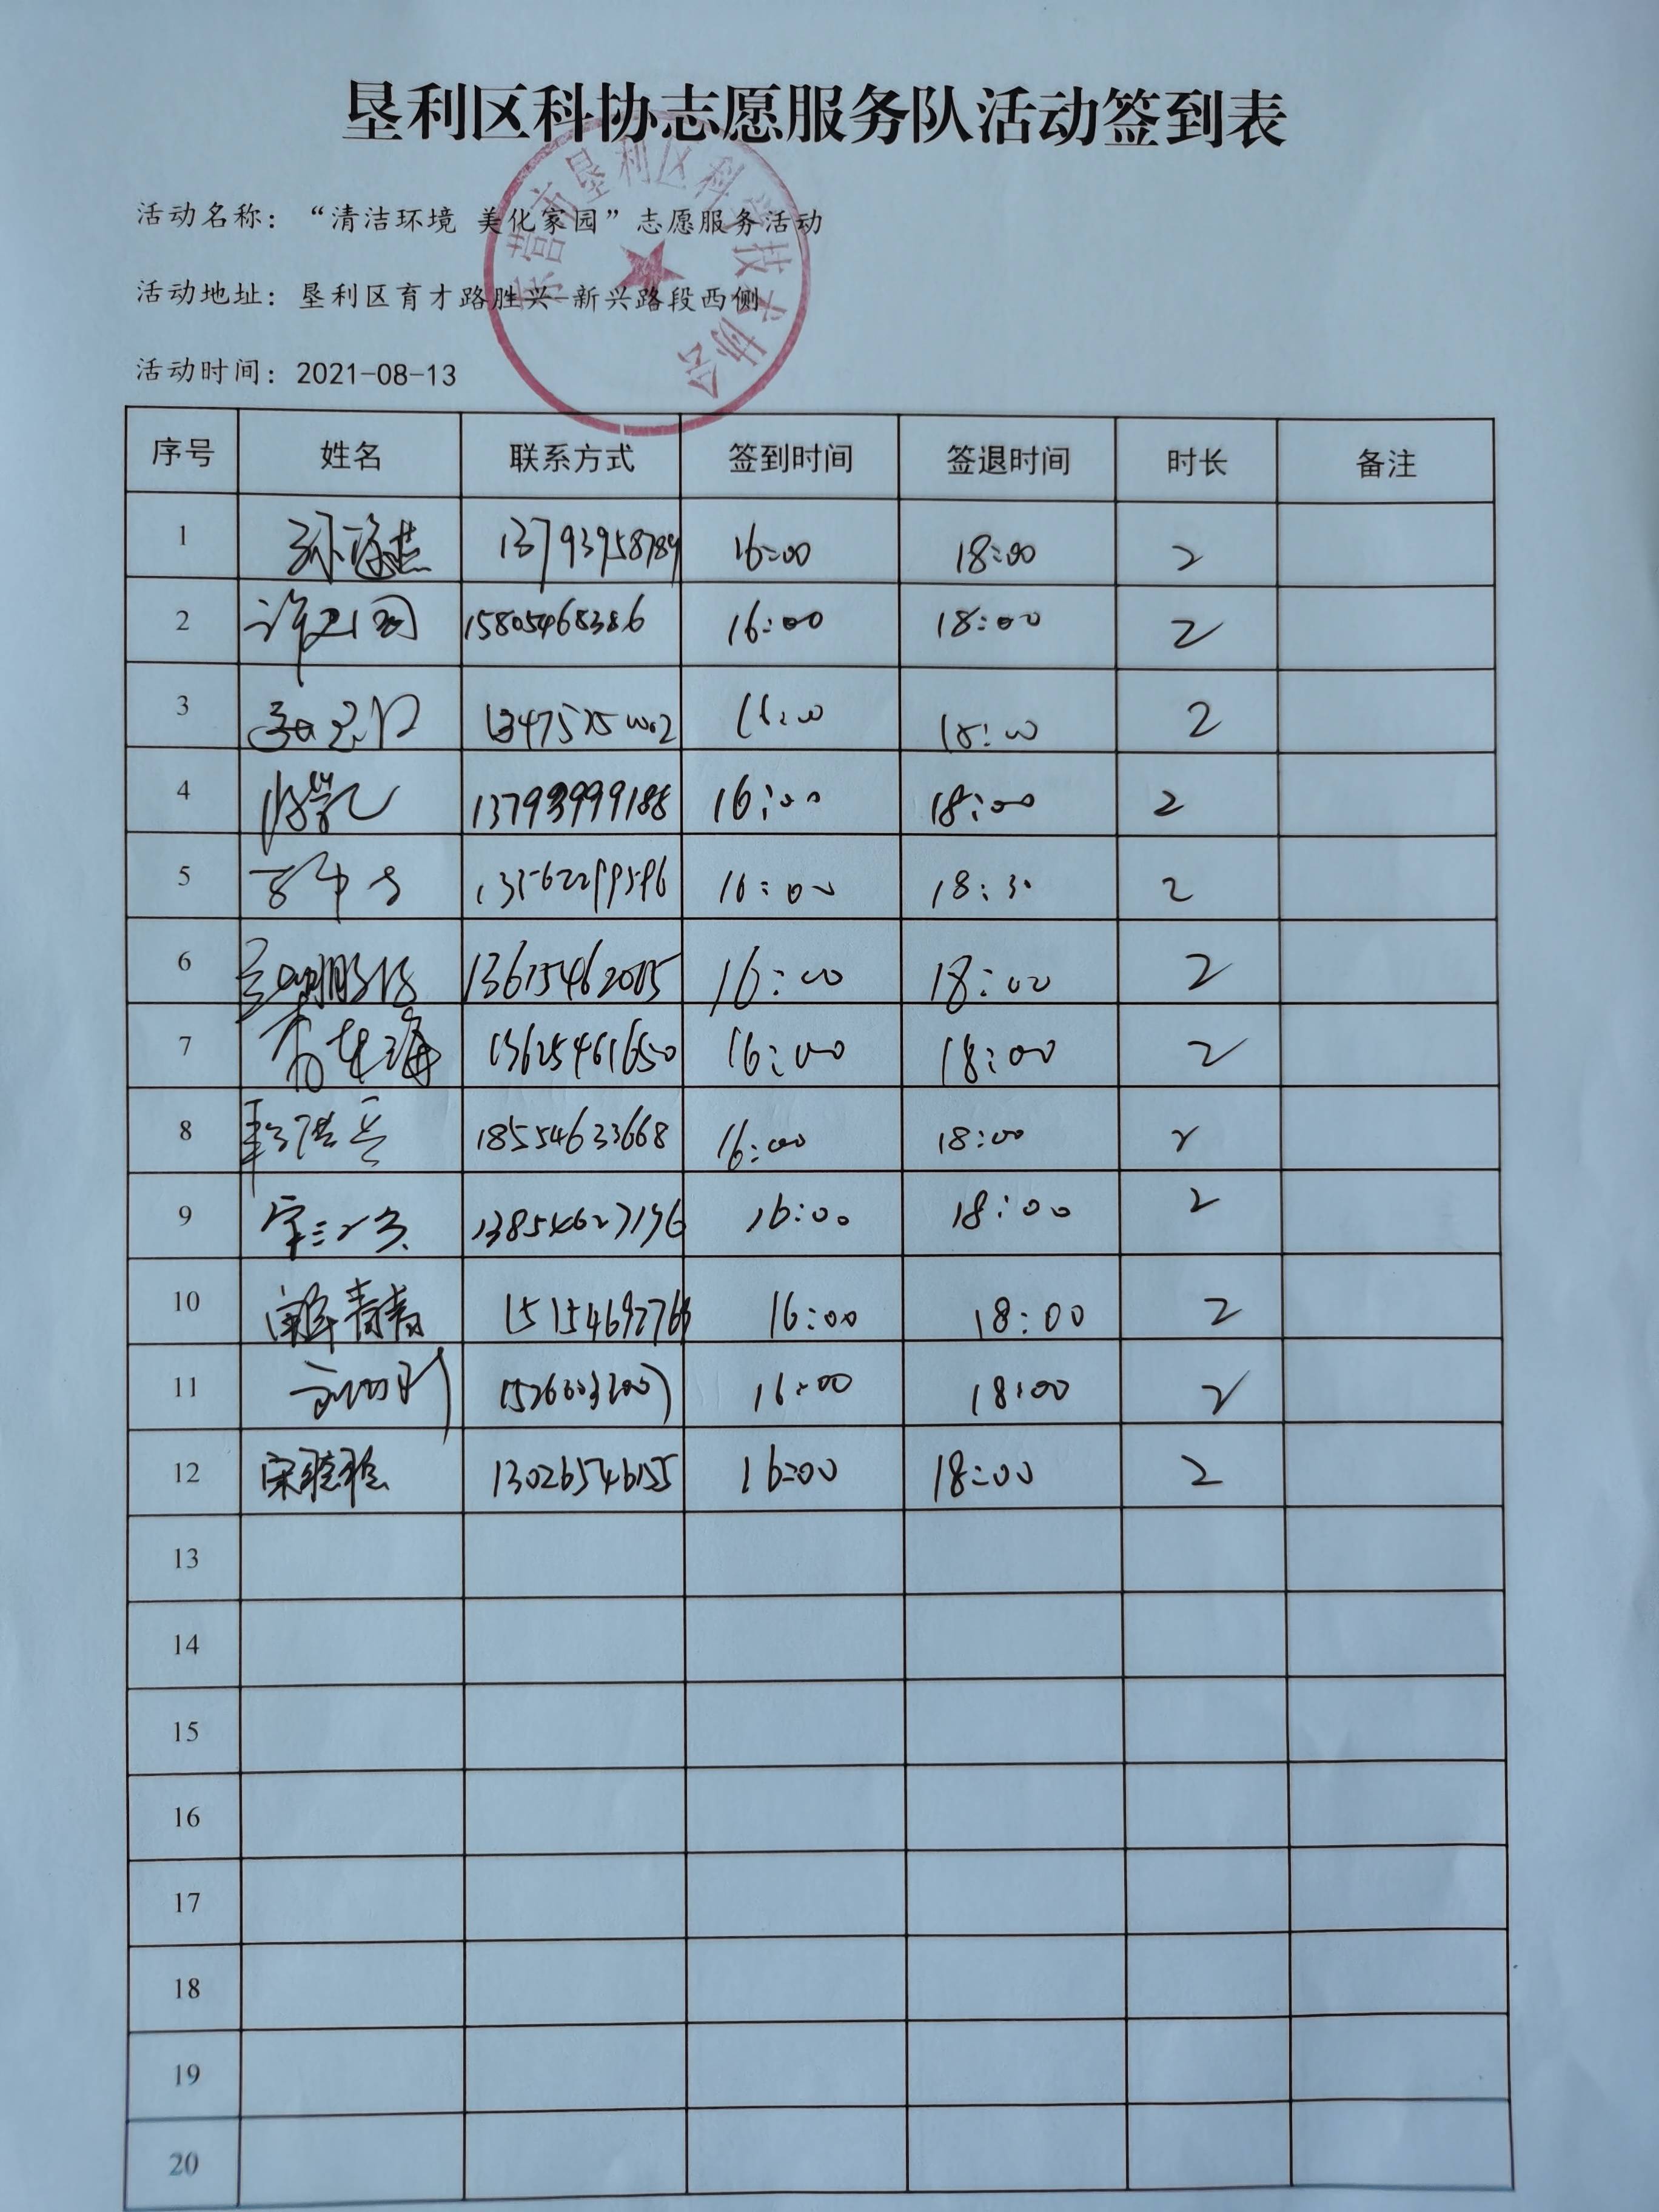 垦利区科协志愿服务队活动签到表
东营市垦利区科学技术协会
活动名称：“清洁环境 美化家园”志愿服务活动
活动地址：垦利区育才路胜兴-新兴路段西侧
活动时间：2021-08-13
序号 姓名 联系方式 签到时间 签退时间 时长 备注
1 16:00 18:00 2
2 许卫国 15805468386 16:00 18:00 2
3 16:00 18:00 2
4 13793999188 16:00 18:00 2
5 13562299596 16:00 18:30 2
6 13615462005 16:00 18:00 2
7 13625461650 16:00 18:00 2
8 18554633668 16:00 18:00 2
9 13854627196 16:00 18:00 2
10 青青 16:00 18:00 2
11 16:00 18:00 2
12 宋 13026546155 16:00 18:00 2
13
14
15
16
17
18
19
20